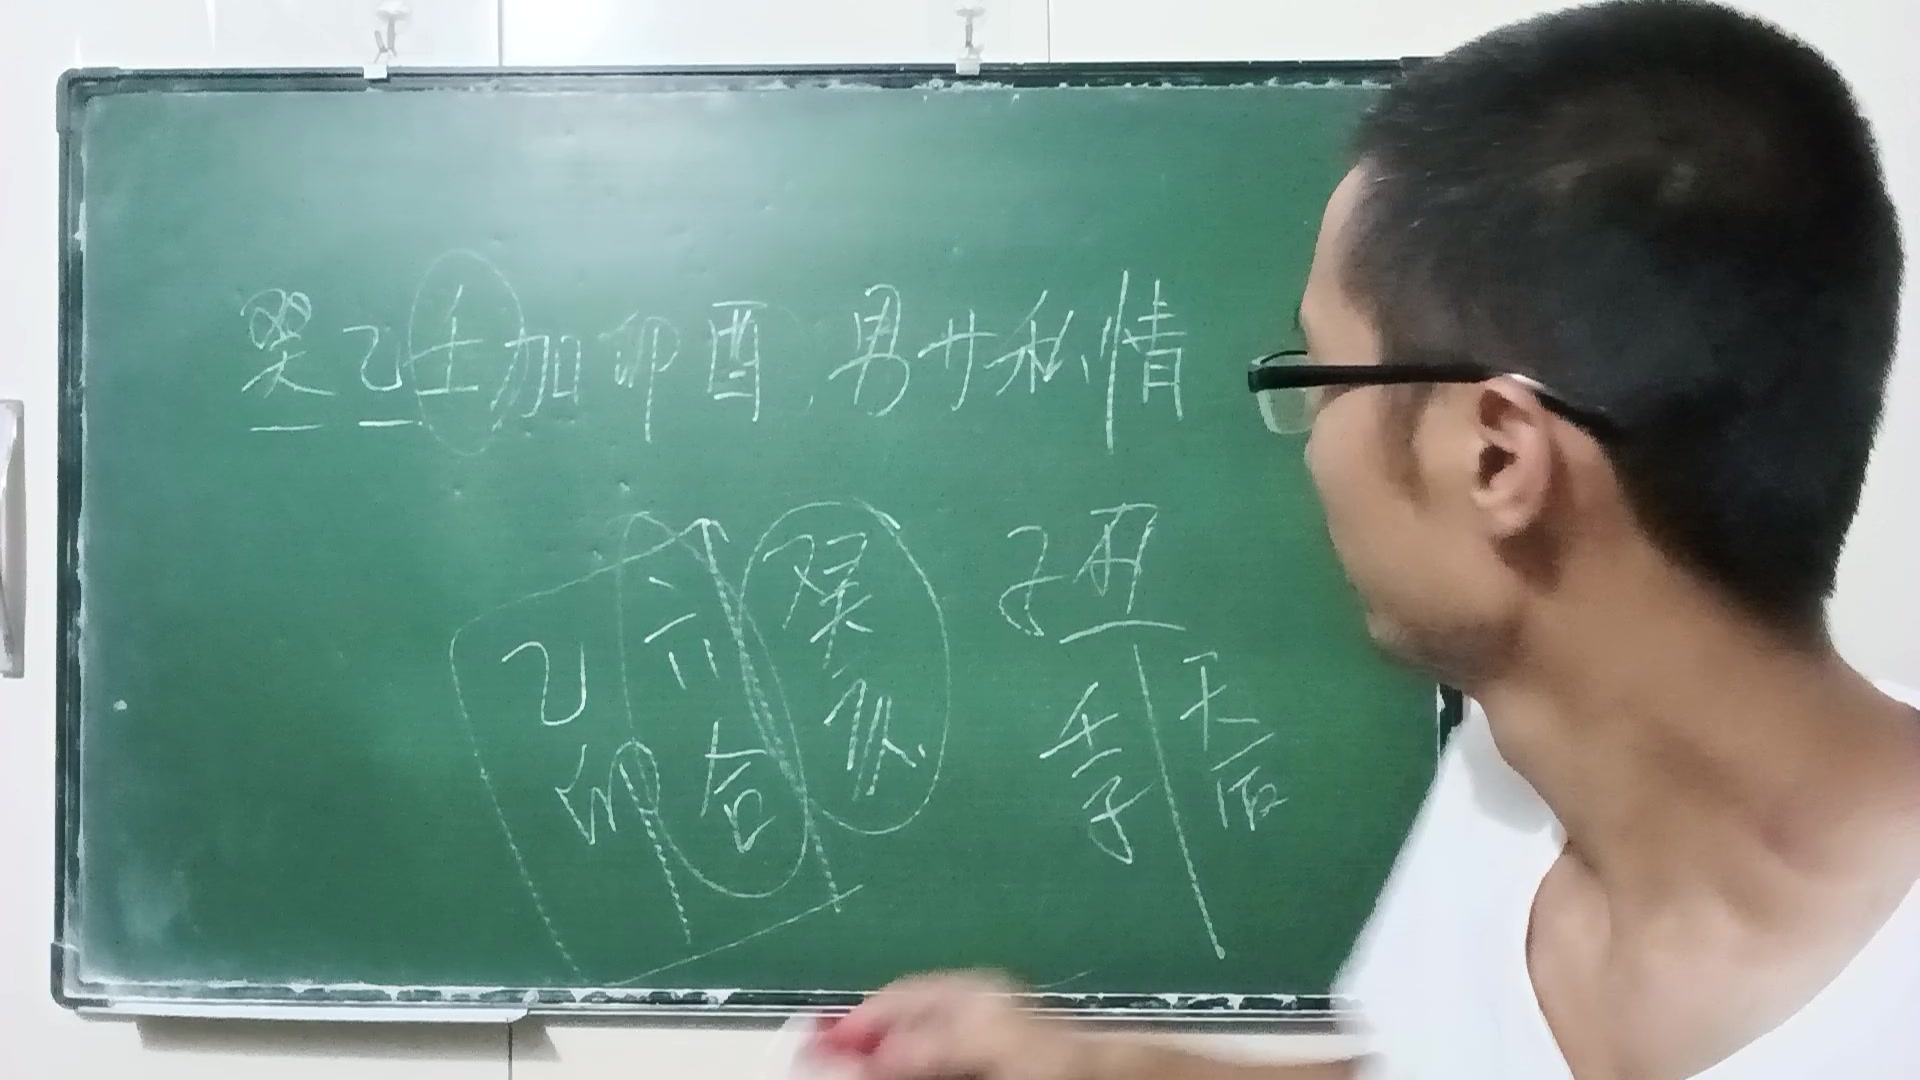 癸乙壬加卯酉,男女私情
乙卯 六合 癸 子丑
壬子 天后